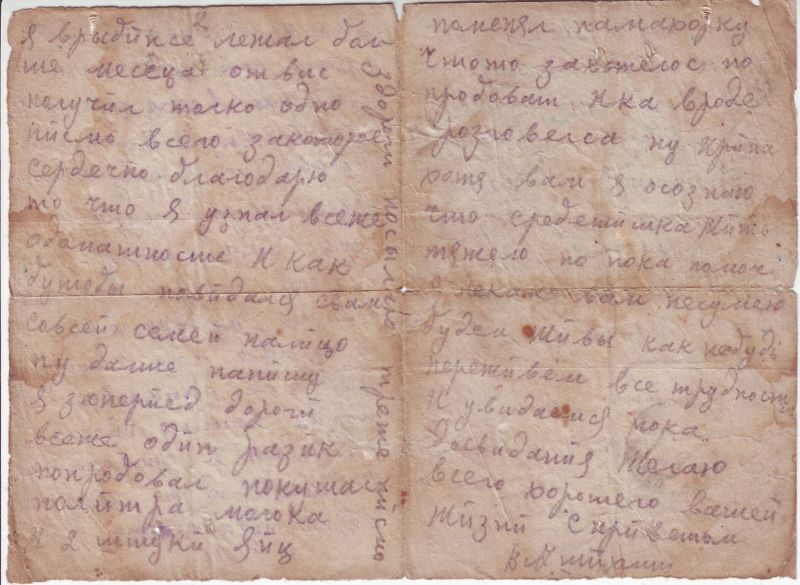 2
я врыбинсе лежал бол
ше месеца от вас
получил толко одно
писмо всего закоторое
сердечно благодарю
то что я узнал всеже
одомашносте и как
будтобы повидался свами
совсей семей налицо
ну далше напишу
я заперйед дороги
всеже один разик
попробовал покушат
полйтра молока
и 2 штуки яйц
здороги посылаю трете писмо
поменял памахорку
чтото захотелос по
пробоват и ка вроде
розговелся ну
хотя вам я осознаю
что средетимка жить
тяжело но пока помоч
я некак вам несумею
будем живы как небудь
переживем все трудности
и увидимся пока
досвидания желаю
всего хорошего вашей
жизни с приветом